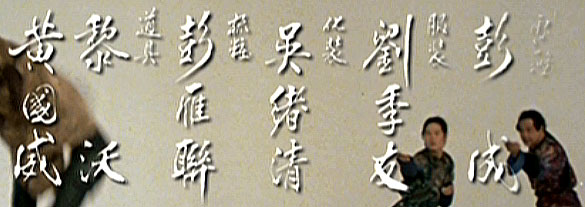 彭成
服裝
劉季友
化裝
吳緒清
梳粧
彭雁聯
道具
黎沃
黃國威